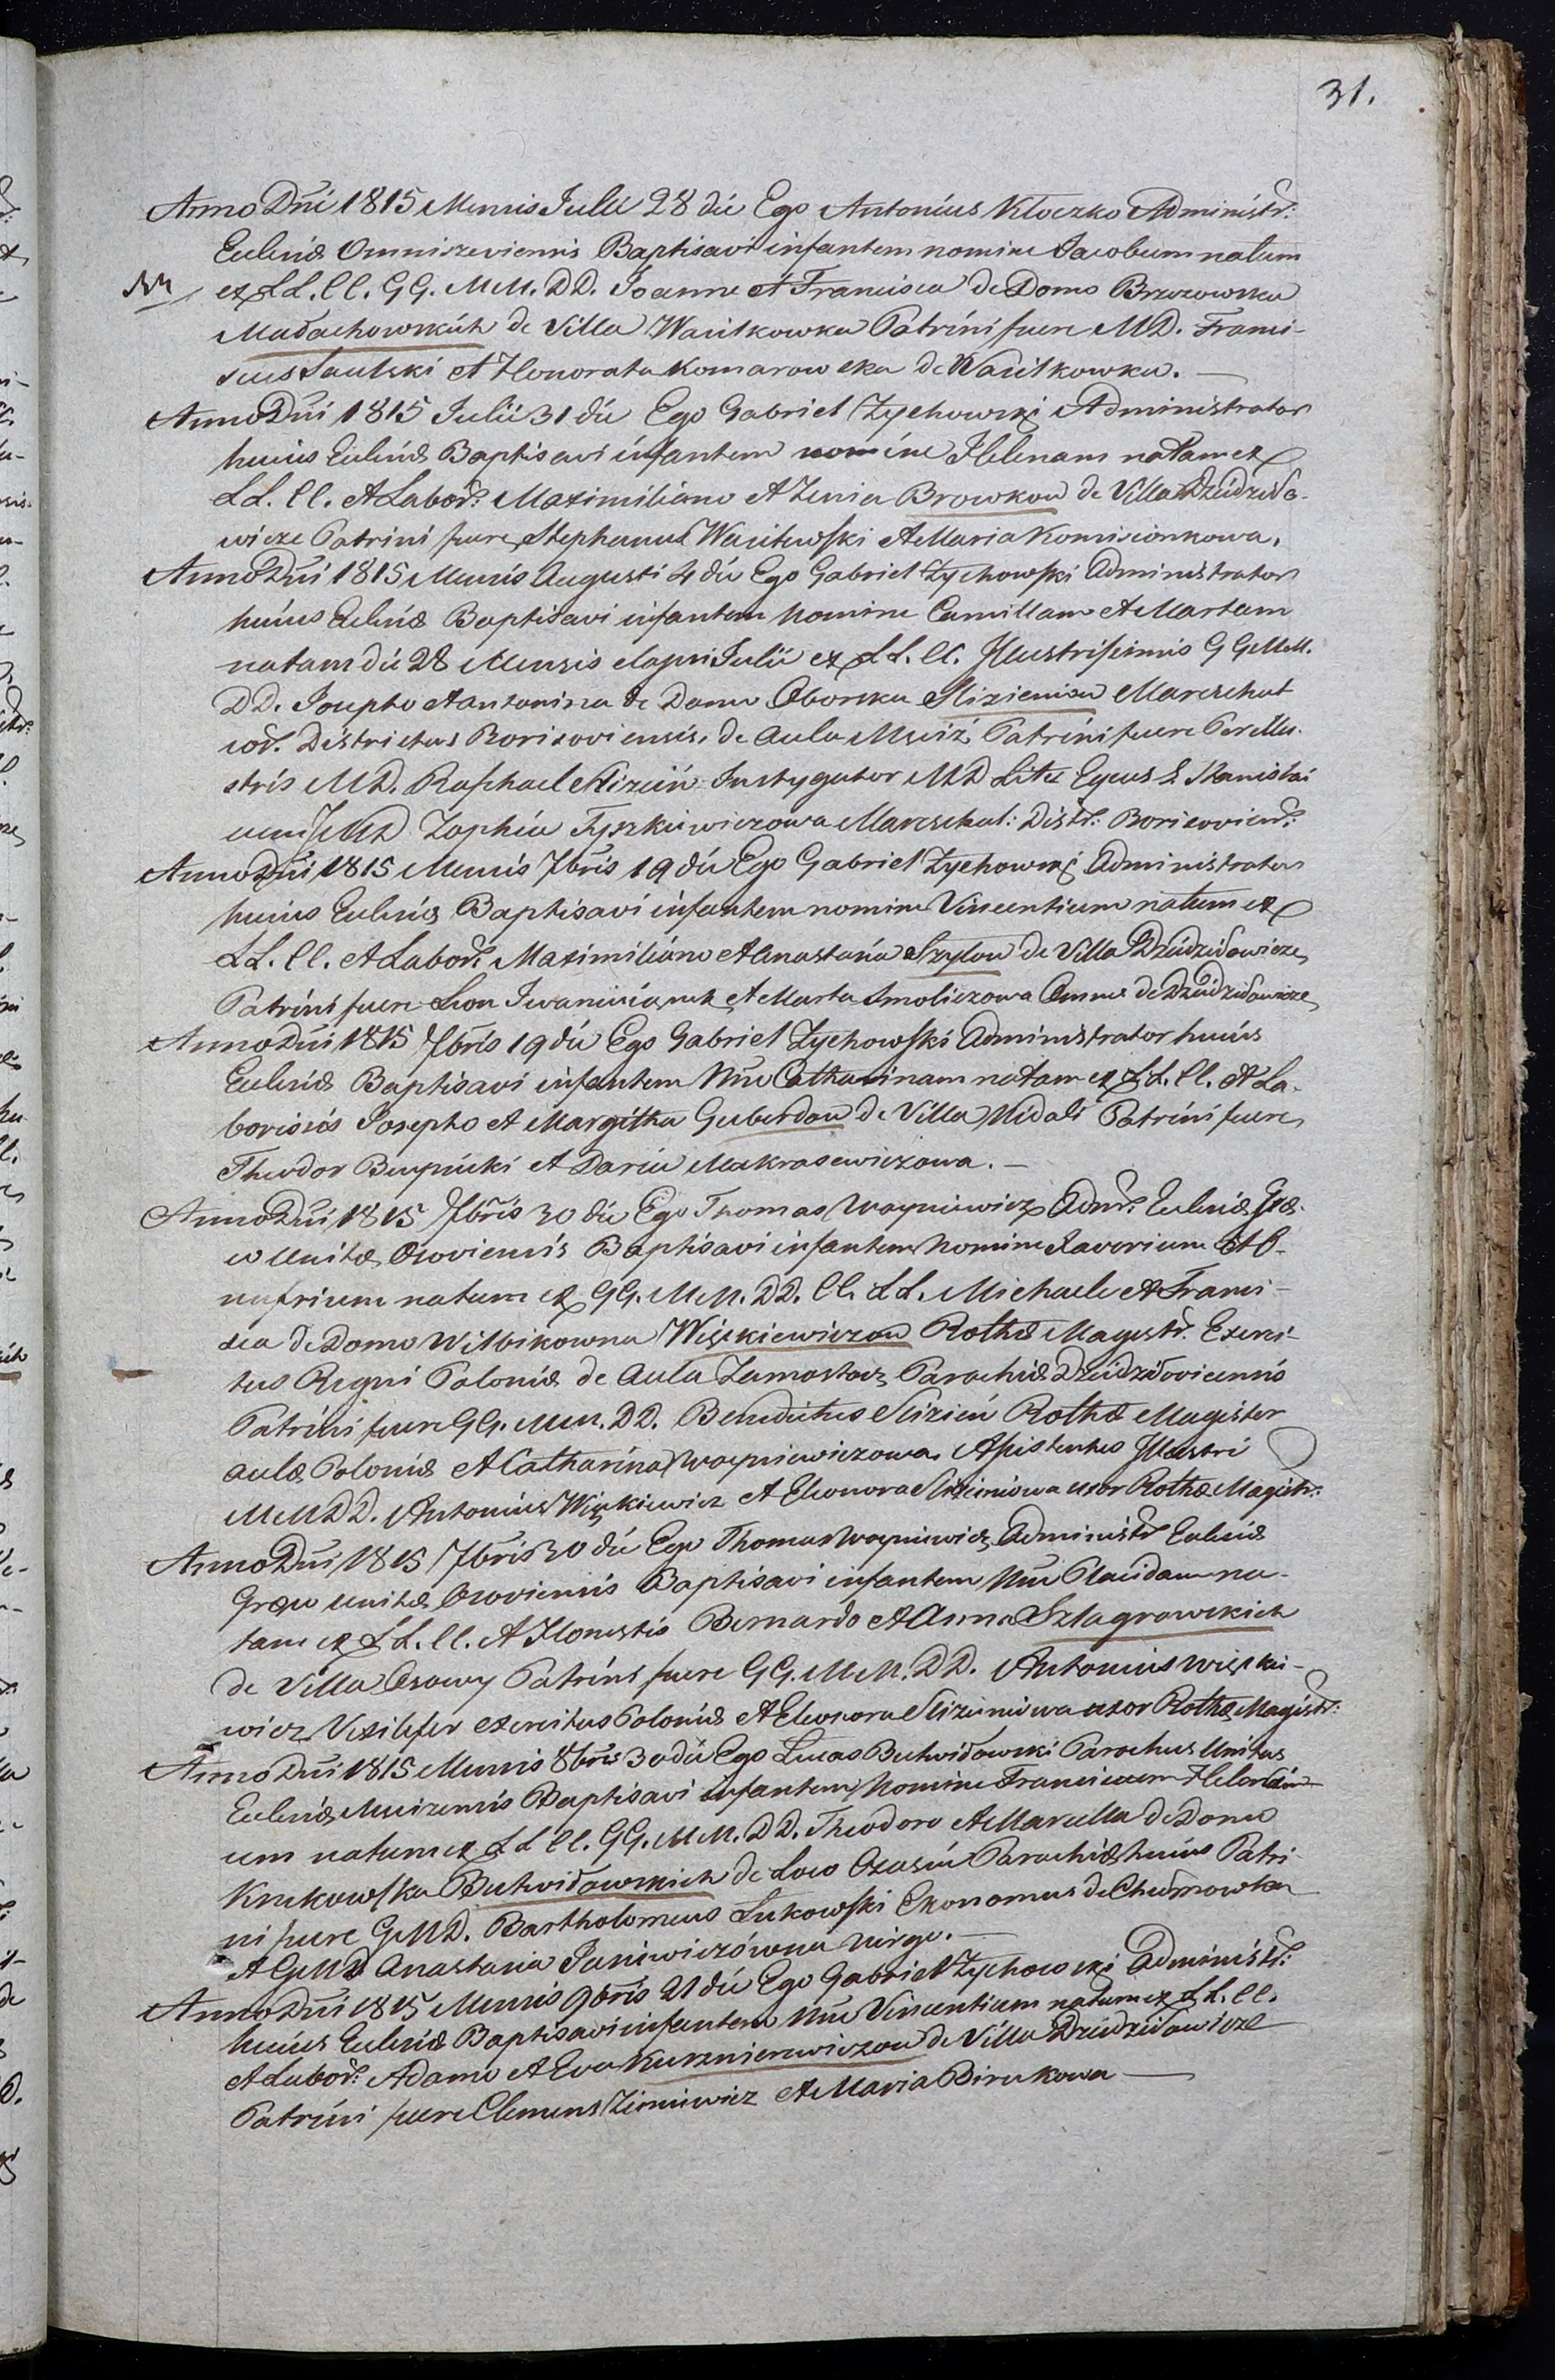 31.
Anno Dni 1815 Mensis Julii 28 die Ego Antonius Kłoczko Administr:
Eccleniæ Omniszeviensis Baptisavi infantem nomine Jacobum natum
ex LL. CC. GG. MM. DD. Joanne et Francisca de Domo Brzozowska
Małachowskich de Villa Wasilkowka Patrini fuere MD. Franci-
scus et Honorata Komarowska de Wasilkowka. —
Anno Dni 1815 Julii 31 die Ego Gabriel Zychowski Administrator
huius Eccliæ Baptisavi infantem nomine Helenam natam ex
LL. CC. et Labor: Maximiliano et Zenia Browkow de Villa Dziedziło-
wicze Patrini fuere Stephanus Wasilewski et Maria Komisionkowa.
Anno Dni 1815 Mensis Augusti 4 die Ego Gabriel Zychowski Administrator
huius Eccliæ Baptisavi infantem Nomine Camillam et Martam
natam die 28 Mensis elapsi Julii ex LL. CC. Illustrissimis GG MM.
DD. Josepho et Antonina de Domo Oborska Slizieniow Mareschal
Districtus Borisoviensis, de Aula Mściż Patrini fuere Perillu-
stris MD. Raphael Slizień Instygator MD Lit: Eques S. Stanislai
cum MD Zophia Tyszkiewiczowa Mareschal: Distr: Borisoviens:
Anno Dni 1815 Mensis 7bris 19 die Ego Gabriel Zychowski Administrator
huius Eccliæ Baptisavi infantem nomine Vincentium natum ex
LL. CC. et Labor: Maximiliano et Anastasia Szyłow de Villa Dziedziłowicze
Patrini fuere Leon et Marta Smoliczowa Omnes de Dziedziłowicze
Anno Dni 1815 7bris 19 die Ego Gabriel Zychowski Administrator huius
Eccliæ Baptisavi infantem Nne Catharinam natam ex LL. CC. et La-
boriosis Josepho et Margitha Guberdow de Villa Midali Patrini fuere
Theodor et Daria Makrasewiczowa. —
Anno Dni 1815 7bris 30 die Ego Thomas Woyniewicz Admr: Eccliæ Græ-
co Unitæ Osoviensis Baptisavi infantem Nomine Xaverium et O-
nufrium natum ex GG. MM. DD. CC. LL. Michaele et Franci-
sca de Domo Witbikowna Więckiewiczow Rothæ Magistr. Exerci-
tus Regni Poloniæ de Aula Zamostocz Parochiæ Dziedziłoviciensis
Patrini fuere GG. MM. DD. Benedictus Slizień Rothæ Magister
aulæ Poloniæ et Catharina Woyniewiczowa. Assistentes Illustri
MM DD. Antonius Więckiewicz et Eleonora Slizieniowa uxor Rothæ Magistr:
Anno Dni 1815 7bris 30 die Ego Thomas Woyniewicz Administr Eccliæ
Græco Unitæ Osoviensis Baptisavi infantem Nne Placidam na-
tam ex LL. CC. et Honestis Bernardo et Anna Szlagrowskich
de Villa Osowy Patrini fuere GG. MM. DD. Antonius Więcki-
wicz Vexilifer exercitus Poloniæ et Eleonora Slizieniowa uxor Rothæ Magistr:
Anno Dni 1815 Mensis 8bris 30 die Ego Lucas Butwiłowski Parochus Unitus
Eccliæ Baptisavi infantem Nomine Franciscum
um natum ex LL CC. GG. MM. DD. Theodoro et Marcella de Domo
Krukowska Butwiłowskich de Loco Parochiæ huius Patri-
ni fuere GMD. Bartholomeus Łukowski Ekonomus de
et GMD Anastasia Janiewiczówna virgo. —
Anno Dni 1815 Mensis 9bris 21 die Ego Gabriel Zychowski Administr:
huius Eccliæ Baptisavi infantem Nne Vincentium natum ex LL. CC.
et Labor: Adamo et Eva Kuśnierewiczow de Villa Dziedziłowicze
Patrini fuere Clemens Zieniewicz et Maria Birukowa —